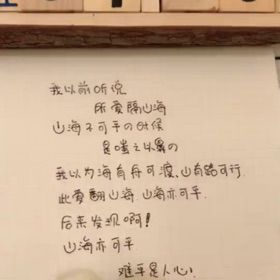 我以前听说
所爱隔山海
山海不可平の时候
是嗤之以鼻の
我以为海有舟可渡,山有路可行.
此爱翻山海.山海亦可平.
后来发现啊!
山海亦可平
难平是人心!